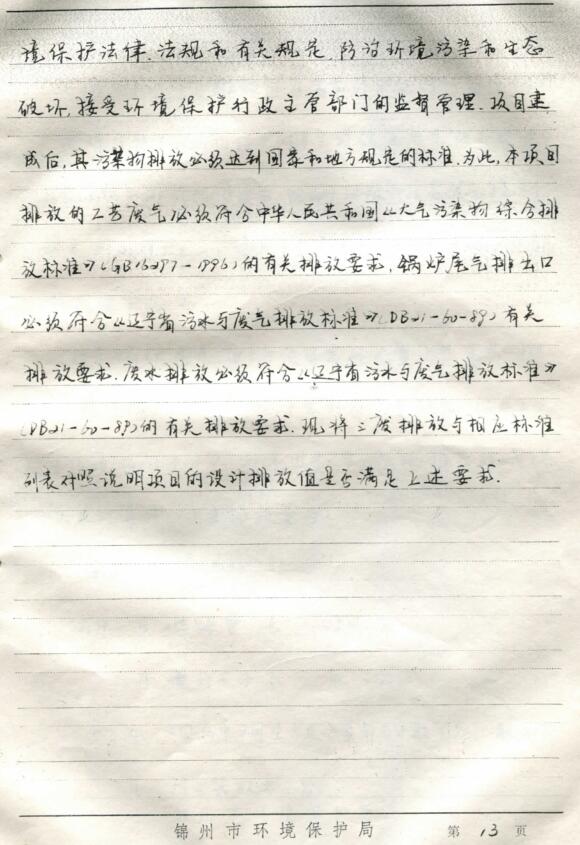 境保护法律、法规和有关规定,防治环境污染和生态
破坏,接受环境保护行政主管部门的监督管理.项目建
成后,其污染物排放必须达到国家和地方规定的标准.为此,本项目
排放的工艺废气必须符合中华人民共和国《大气污染物综合排
放标准》(GB16297-1996)的有关排放要求,锅炉尾气排出口
必须符合《辽宁省污水与废气排放标准》(DB21-60-89)有关
排放要求.废水排放必须符合《辽宁省污水与废气排放标准》
(DB21-60-89)的有关排放要求.现将三废排放与相应标准
列表对照说明项目的设计排放值是否满足上述要求.
锦州市环境保护局 第 13 页